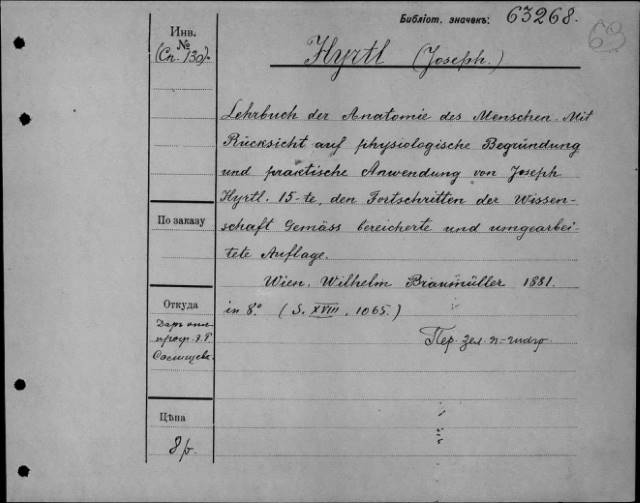 Библіот. значекъ: 63268.
63
Инв.
№
(Сп. 130).
Hyrtl (Joseph.)
Lehrbuch der Anatomie des Menschen. Mit
Rücksicht auf physiologische Begründung
und praktische Anwendung von Joseph
Hyrtl. 15-te, den Fortschritten der Wissen-
schaft Gemäss bereicherte und umgearbei-
tete Auflage.
Wien, Wilhelm Braumüller 1881.
in 8.° (S. XVIII, 1065.)
Пер. зел.
По заказу
Откуда
Даръ
проф. Э. Г.
Салищева.
Цѣна
8 р.